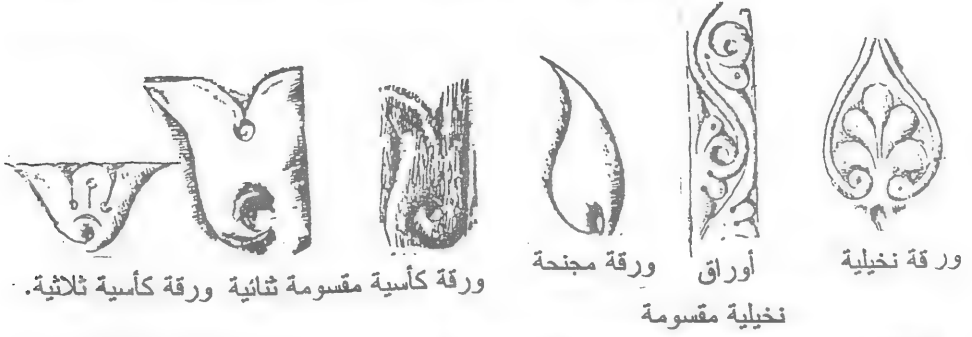 ورقة نخيلية
أوراق
نخيلية مقسومة
ورقة مجنحة
ورقة كأسية مقسومة ثنائية
ورقة كأسية ثلاثية.